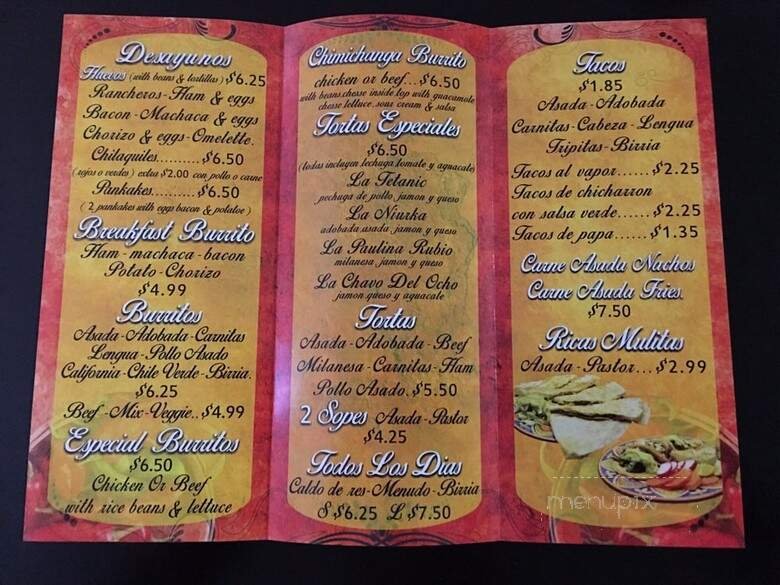 Desayunos
Huevos (with beans & tortillas) $6.25
Rancheros-Ham & eggs
Bacon-Machaca & eggs
Chorizo & eggs-Omelette.
Chilaquiles.......... $6.50
(rojos o verdes) extra $2.00 con pollo o carne
Pankakes.......... $6.50
(2 pankakes with eggs bacon & potatoe)
Breakfast Burrito
Ham-machaca-bacon
Potato-Chorizo
$4.99
Burritos
Asada-Adobada-Carnitas
Lengua-Pollo Asado
California-Chile Verde-Birria.
$6.25
Beef-Mix-Veggie.. $4.99
Especial Burritos
$6.50
Chicken Or Beef
with rice beans & lettuce
Chimichanga Burrito
chicken or beef... $6.50
with beans, cheese inside, top with guacamole
cheese lettuce, sour cream & salsa
Tortas Especiales
$6.50
(todas incluyen lechuga, tomate y aguacate)
La Tetanic
pechuga de pollo, jamon y queso
La Niurka
adobada, asada, jamon y queso
La Paulina Rubio
milanesa, jamon y queso
La Chavo Del Ocho
jamon, queso y aguacate
Tortas
Asada-Adobada-Beef
Milanesa-Carnitas-Ham
Pollo Asado. $5.50
2 Sopes Asada-Pastor
$4.25
Todos Los Dias
Caldo de res-Menudo-Birria
S $6.25 L $7.50
Tacos
$1.85
Asada-Adobada
Carnitas-Cabeza-Lengua
Tripitas-Birria
Tacos al vapor...... $2.25
Tacos de chicharron
con salsa verde...... $2.25
Tacos de papa...... $1.35
Carne Asada Nachos
Carne Asada Fries.
$7.50
Ricas Mulitas
Asada-Pastor... $2.99
menupix